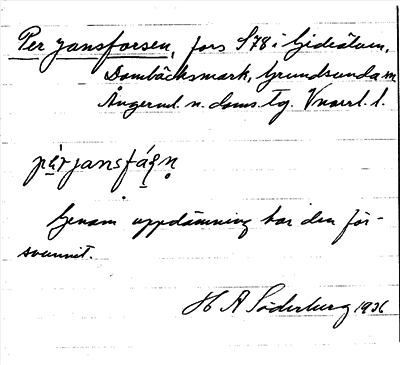 Per Jansforsen, fors S78 i Gideälven,
Dombäcksmark, Grundsunda sn
Ångerml. n. doms. tg. Vnorrl. l.
pàrjansfáʂn̥
Genom uppdämning har den för-
svunnit.
H A Söderberg 1936